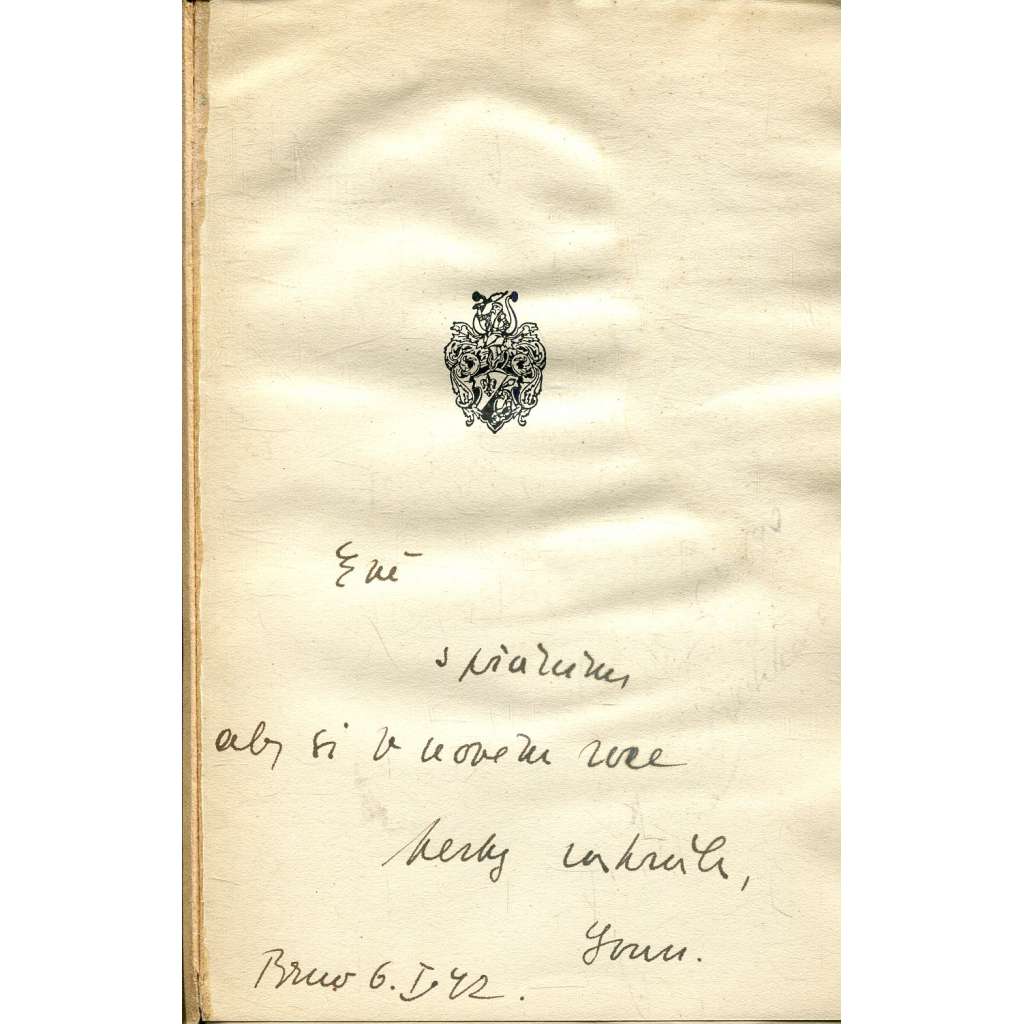 Evě
s přáním,
aby si v novém roce
hezky zahrála,
Brno 6. I. 42.